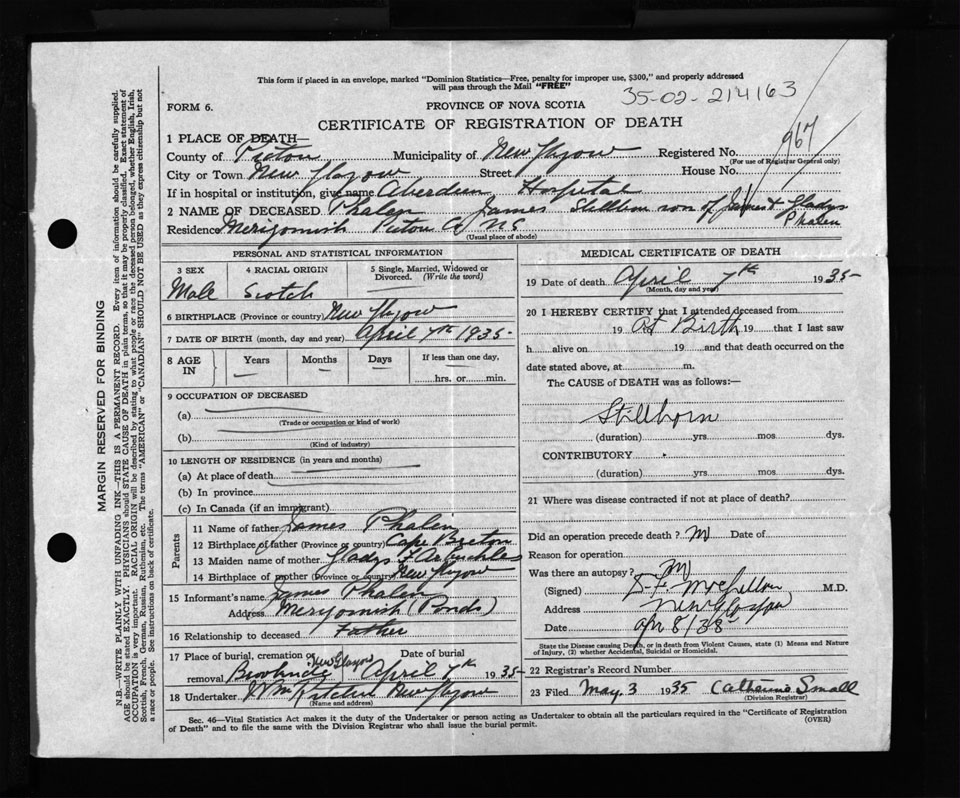 This form if placed in an envelope, marked "Dominion Statistics—Free, penalty for improper use, $300," and properly addressed
will pass through the Mail "FREE"
35-02-214163
FORM 6.
PROVINCE OF NOVA SCOTIA
CERTIFICATE OF REGISTRATION OF DEATH
967
1 PLACE OF DEATH—
County of Pictou Municipality of New Glasgow Registered No.
(For use of Registrar General only)
City or Town New Glasgow Street House No.
If in hospital or institution, give name Aberdeen Hospital
2 NAME OF DECEASED Phalen James Stillborn son of James & Gladys
Phalen
Residence Merigomish Pictou Co NS
(Usual place of abode)
PERSONAL AND STATISTICAL INFORMATION
3 SEX 4 RACIAL ORIGIN 5 Single, Married, Widowed or
Divorced. (Write the word)
Male Scotch
6 BIRTHPLACE (Province or country) New Glasgow
7 DATE OF BIRTH (month, day and year) April 7th 1935
8 AGE IN Years Months Days If less than one day,
hrs. or min.
9 OCCUPATION OF DECEASED
(a)
(Trade or occupation or kind of work)
(b)
(Kind of industry)
10 LENGTH OF RESIDENCE (in years and months)
(a) At place of death
(b) In province
(c) In Canada (if an immigrant)
Parents
11 Name of father James Phalen
12 Birthplace of father (Province or country) Cape Breton
13 Maiden name of mother Gladys F Arbuckles
14 Birthplace of mother (Province or country) New Glasgow
15 Informant's name James Phalen
Address Merigomish (Ponds)
16 Relationship to deceased Father
17 Place of burial, cremation or New Glasgow Date of burial
removal April 7th 1935
18 Undertaker New Glasgow
(Name and address)
MEDICAL CERTIFICATE OF DEATH
19 Date of death April 7th 1935
(Month, day and year)
20 I HEREBY CERTIFY that I attended deceased from
19 At Birth 19 that I last saw
h alive on 19 and that death occurred on the
date stated above, at m.
The CAUSE of DEATH was as follows:—
Stillborn
(duration) yrs. mos. dys.
CONTRIBUTORY
(duration) yrs. mos. dys.
21 Where was disease contracted if not at place of death?
Did an operation precede death? Date of
Reason for operation
Was there an autopsy?
(Signed) M.D.
Address New Glasgow
Date Apr 8/35
State the Disease causing Death, or in death from Violent Causes, state (1) Means and Nature
of Injury, (2) whether Accidental, Suicidal or Homicidal.
22 Registrar's Record Number
23 Filed May 3 1935 Catherine Small
(Division Registrar)
Sec. 46—Vital Statistics Act makes it the duty of the Undertaker or person acting as Undertaker to obtain all the particulars required in the "Certificate of Registration
of Death" and to file the same with the Division Registrar who shall issue the burial permit.
(OVER)
MARGIN RESERVED FOR BINDING
N.B.—WRITE PLAINLY WITH UNFADING INK—THIS IS A PERMANENT RECORD. Every item of information should be carefully supplied.
AGE should be stated EXACTLY. PHYSICIANS should STATE CAUSE OF DEATH in plain terms, so that it may be properly classified. Exact statement of
OCCUPATION is very important. RACIAL ORIGIN will be described by stating to what people or race the deceased person belonged, whether English, Irish,
Scottish, French, German, Russian, Ruthenian, etc. The terms "AMERICAN" or "CANADIAN" SHOULD NOT BE USED as they express citizenship but not
a race or people. See instructions on back of certificate.